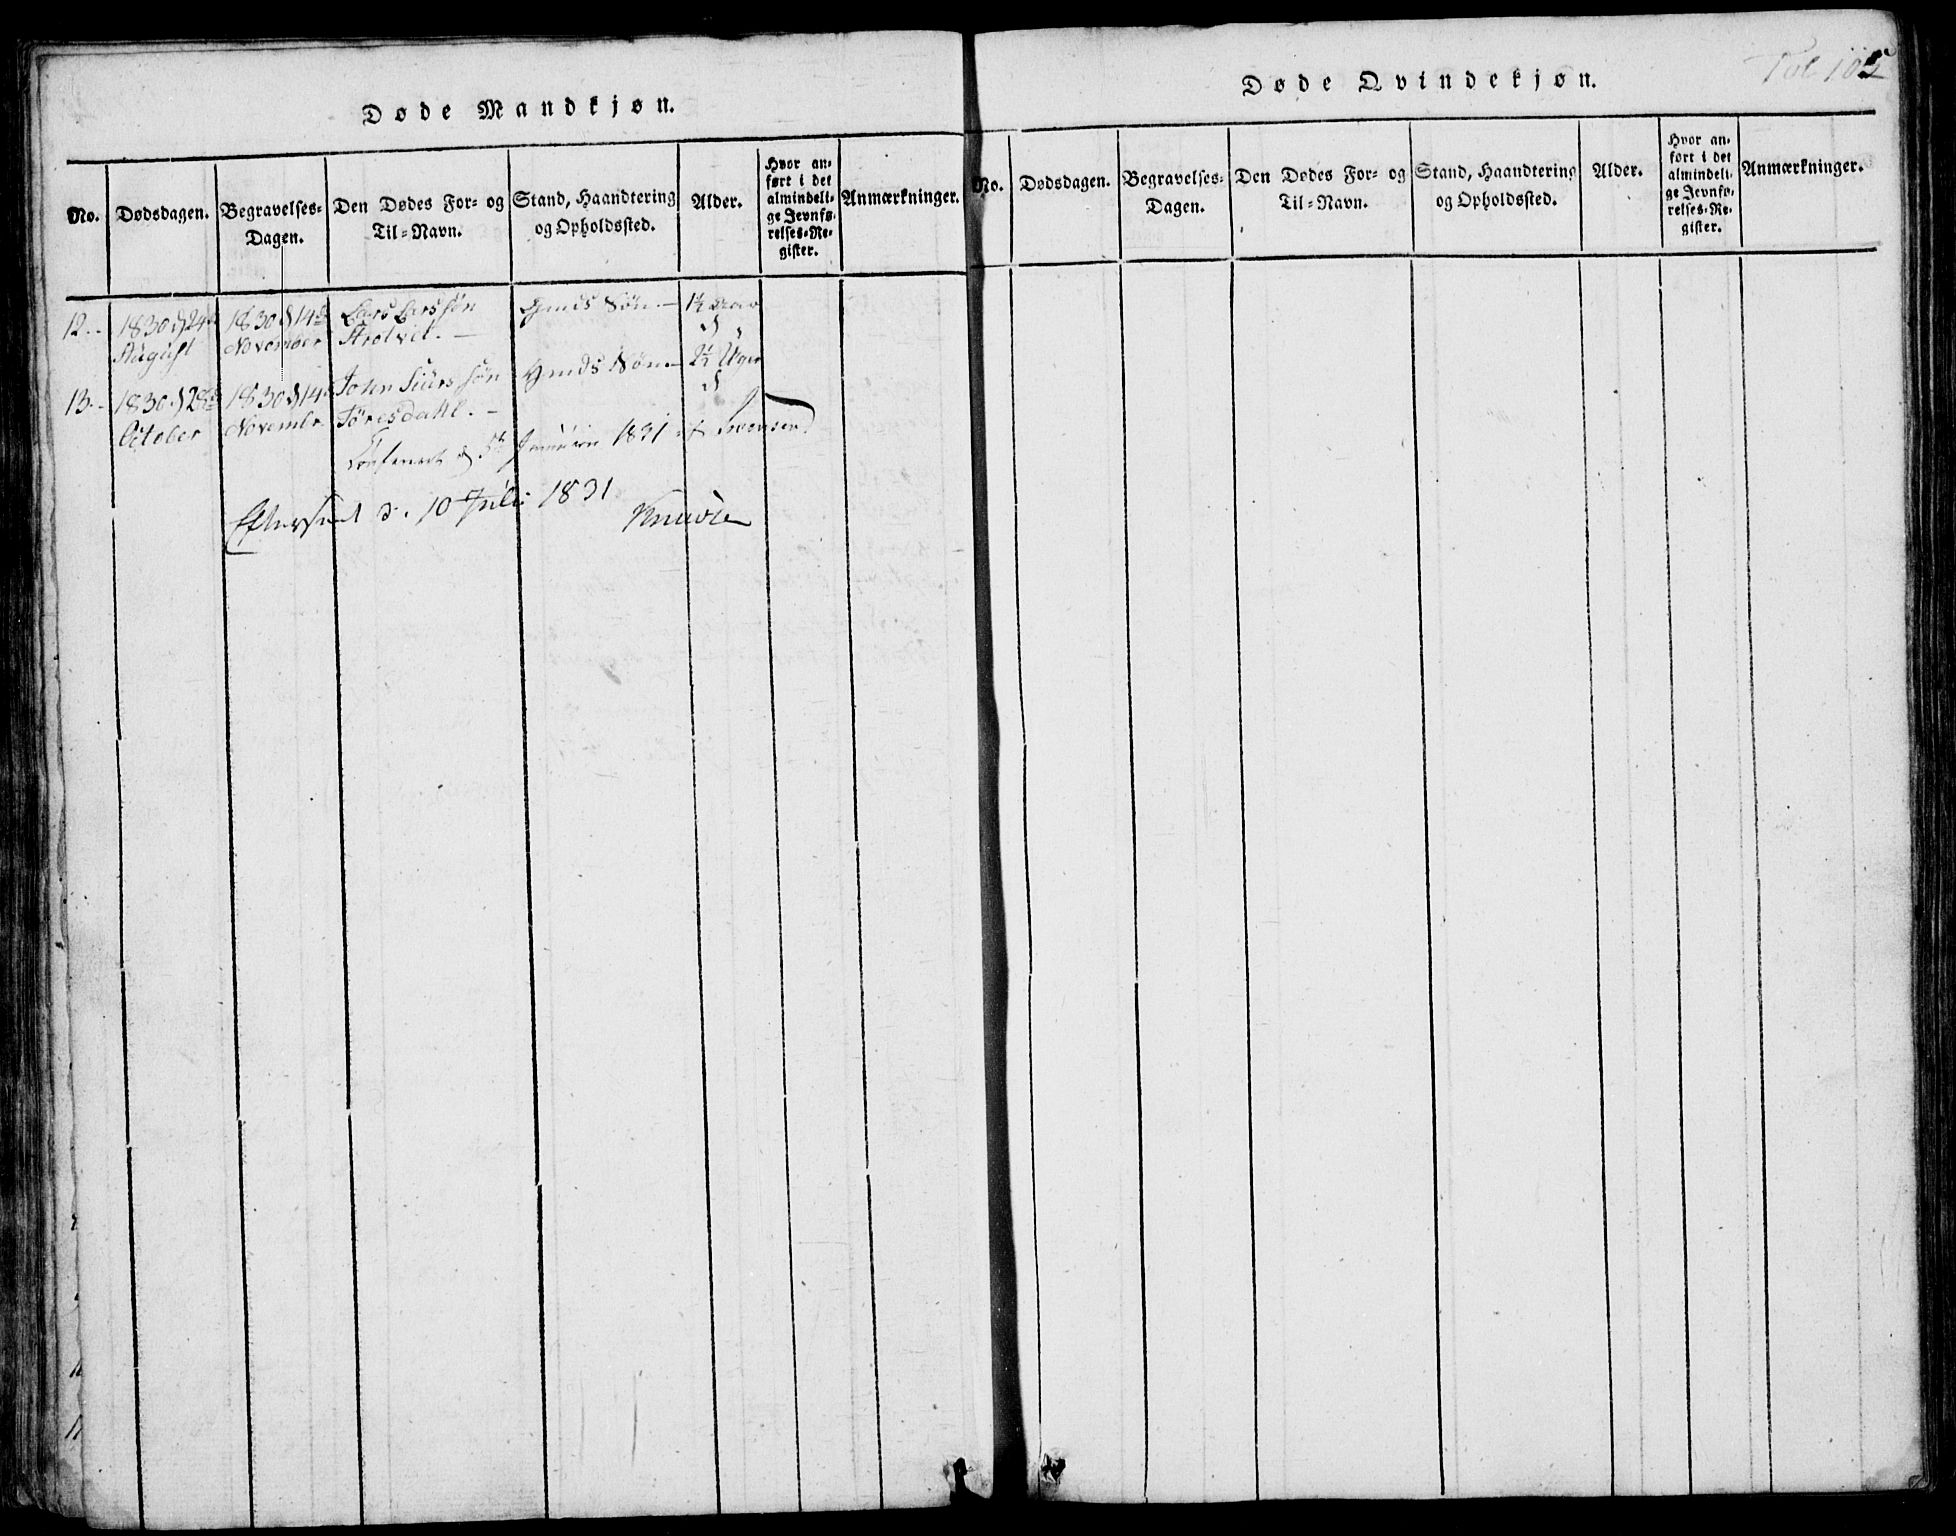 Døde Mandkjøn.
No.
Dødsdagen.
Begravelses-
Dagen.
Den Dødes For- og
Til-Navn.
Stand, Haandtering
og Opholdssted.
Alder.
Hvor an-
ført i det
almindeli-
ge Jevnfø-
relses-Re-
gister.
Anmærkninger.
12.
1830 d 24
August
1830 d 14de
November
Lars Larssøn
Strotvet.
Gmds Søn.
13.
1830 d 28de
October
1830 d 14
Novembr
John Siurssøn
Toresdahl.
Gmds Søn
2½ Uger
d 5te 1831 af
Efterseet d. 10 Juli 1831
Fol 105
Døde Qvindekjøn.
No.
Dødsdagen.
Begravelses-
Dagen.
Den Dødes For- og
Til-Navn.
Stand, Haandtering
og Opholdssted.
Alder.
Hvor an-
ført i det
almindeli-
ge Jevnfø-
relses-Re-
gister.
Anmærkninger.